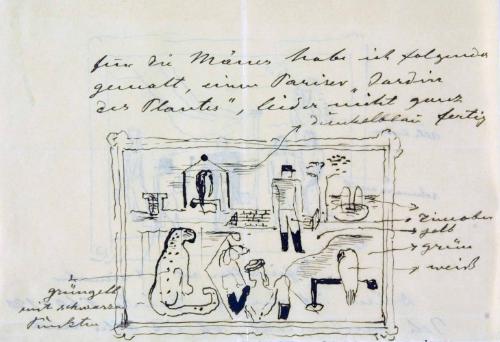 für die Mäzene habe ich folgendes
gemalt, einen Pariser "Jardin
des Plantes", leider nicht ganz
dunkelblau fertig
Zinnober
gelb
grün
weiß
grüngelb
mit schwarzen
Punkten